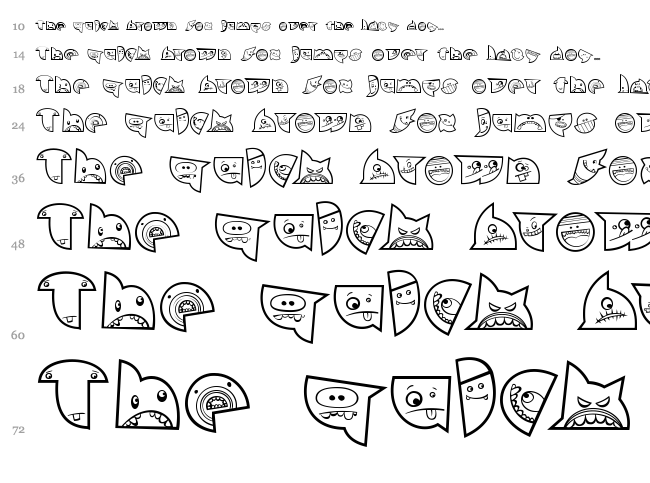 10 The quick brown fox jumps over the lazy dog.
14 The quick brown fox jumps over the lazy dog.
18 The quick brown fox jumps over the la
24 The quick brown fox jumps o
36 The quick brown fo
48 The quick brow
60 The quick b
72 The quick